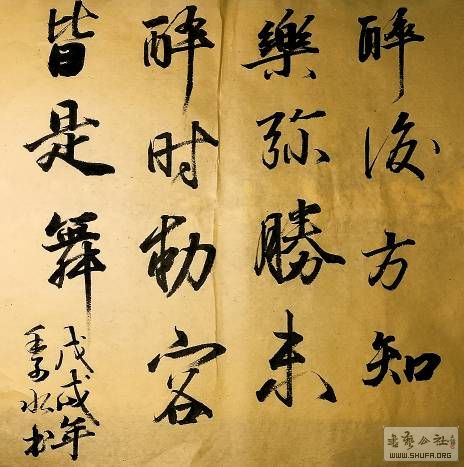 醉後方知
樂弥勝未
醉时動容
皆是舞
戊戌年
书
书艺公社
WWW.SHUFA.ORG